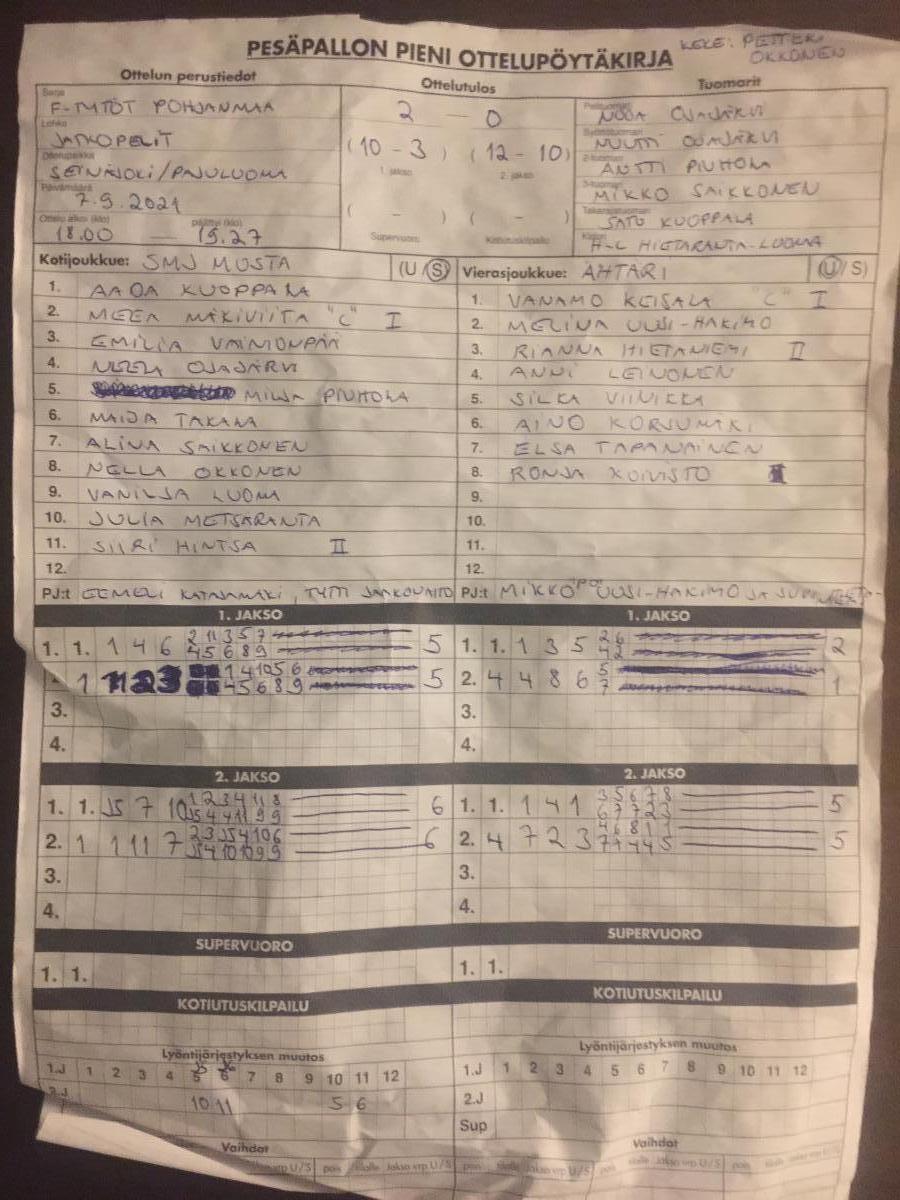 PESÄPALLON PIENI OTTELUPÖYTÄKIRJA
KEKE: PETTERI OKKONEN
Ottelun perustiedot
Sarja
F-TYTÖT POHJANMAA
Lohko
JATKOPELIT
Ottelupaikka
SEINÄJOKI/PAJULUOMA
Päivämäärä
7.9.2021
Ottelu alkoi (klo) päättyi (klo)
18.00 — 19.27
Ottelutulos
2 — 0
(10 - 3) (12 - 10)
1. jakso 2. jakso
( - ) ( - )
Supervuoro Kotiutuskilpailu
Tuomarit
Pelituomari
NOOA OJAJÄRVI
Syöttötuomari
NUUTTI OJAJÄRVI
2-tuomari
ANTTI PIUHOLA
3-tuomari
MIKKO SAIKKONEN
Takarajatuomari
SATU KUOPPALA
Kirjuri
H-L HIETARANTA-LUOMA
Kotijoukkue: SMJ MUSTA (U/S)
1. AADA KUOPPALA
2. MEEA MÄKIVIITA "C" I
3. EMILIA VAINIONPÄÄ
4. NEEA OJAJÄRVI
5. MILJA PIUHOLA
6. MAIJA TAKALA
7. ALINA SAIKKONEN
8. NELLA OKKONEN
9. VANILJA LUOMA
10. JULIA METSÄRANTA
11. SIIRI HINTSA II
12.
PJ:t EEMELI KATAJAMÄKI, TYTTI
Vierasjoukkue: ÄHTÄRI (U/S)
1. VANAMO KEISALA "C" I
2. MELINA UUSI-HAKIMO
3. RIANNA HIETANIEMI II
4. ANNI LEINONEN
5. SILKA VIINIKKA
6. AINO KORJUMÄKI
7. ELSA TAPANAINEN
8. RONJA KOIVISTO
9.
10.
11.
12.
PJ:t MIKKO "PO" UUSI-HAKIMO JA
1. JAKSO
1. 1. 1 4 6 2 11 3 5 7 5
4 5 6 8 9
1 1 4 10 5 6 5
4 5 6 8 9
3.
4.
1. JAKSO
1. 1. 1 3 5 2 6 2
4 2
2. 4 4 8 6 5 1
7
3.
4.
2. JAKSO
1. 1. J5 7 10 1 2 3 4 11 8 6
J5 4 4 11 9 9
2. 1 1 11 7 2 3 J5 4 10 6 6
J5 4 10 10 9 9
3.
4.
2. JAKSO
1. 1. 1 4 1 3 5 6 7 8 5
6 7 7 2 3
2. 4 7 2 3 4 6 8 1 1 5
7 7 4 4 5
3.
4.
SUPERVUORO
1. 1.
SUPERVUORO
1. 1.
KOTIUTUSKILPAILU
KOTIUTUSKILPAILU
Lyöntijärjestyksen muutos
1.J 1 2 3 4 5 6 7 8 9 10 11 12
2.J 10 11 5 6
Lyöntijärjestyksen muutos
1.J 1 2 3 4 5 6 7 8 9 10 11 12
2.J
Sup
Vaihdot
Vaihdot
pois tilalle Jakso vrp U/S pois